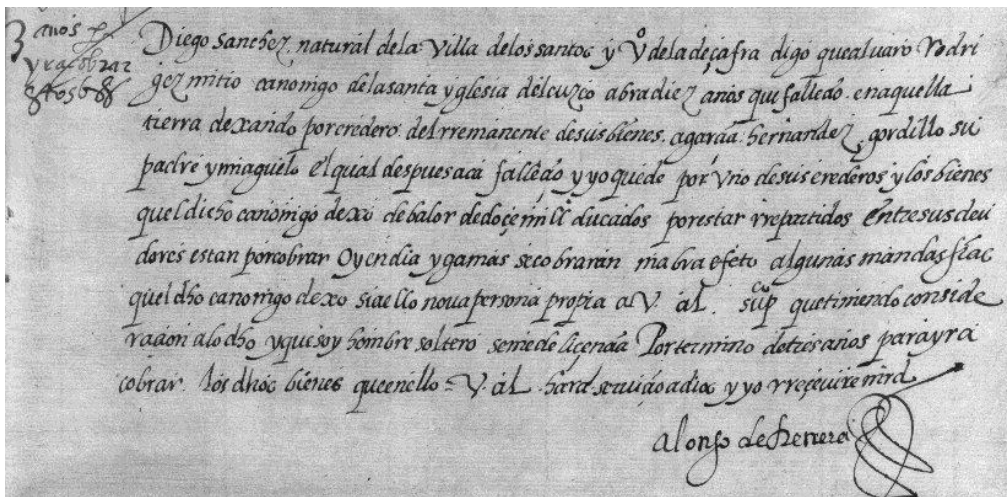 3 años p
yra cobrar
Diego sanchez natural dela Villa delos santos y vº dela deçafra digo quealuaro Rodri
gez mitio canonigo delasanta yglesia delcuzco abra diez anos que falledo enaquella
tierra dexando por eredero del rremanente desus bienes agarcia hernandez gordillo su
padre y miaguelo el qual despues aca falledo y yo quede por vno desus erederos y los bienes
quel dicho canonigo dexo de balor de doçe mill ducados por estar rrepartidos entre sus deu
dores estan por cobrar oy en dia y gamas se cobraran ni abra efeto algunas mandas
quel dho canonigo dexo si a ello no va persona propia a V. al. supco que tiniendo conside
raçion alo dho y que soy hombre soltero se me de liçençia Por termino de tres años para yr a
cobrar los dhos bienes que en ello V. al. hara seruiçio a dios y yo rreçeuire mrd
alonso de herrera